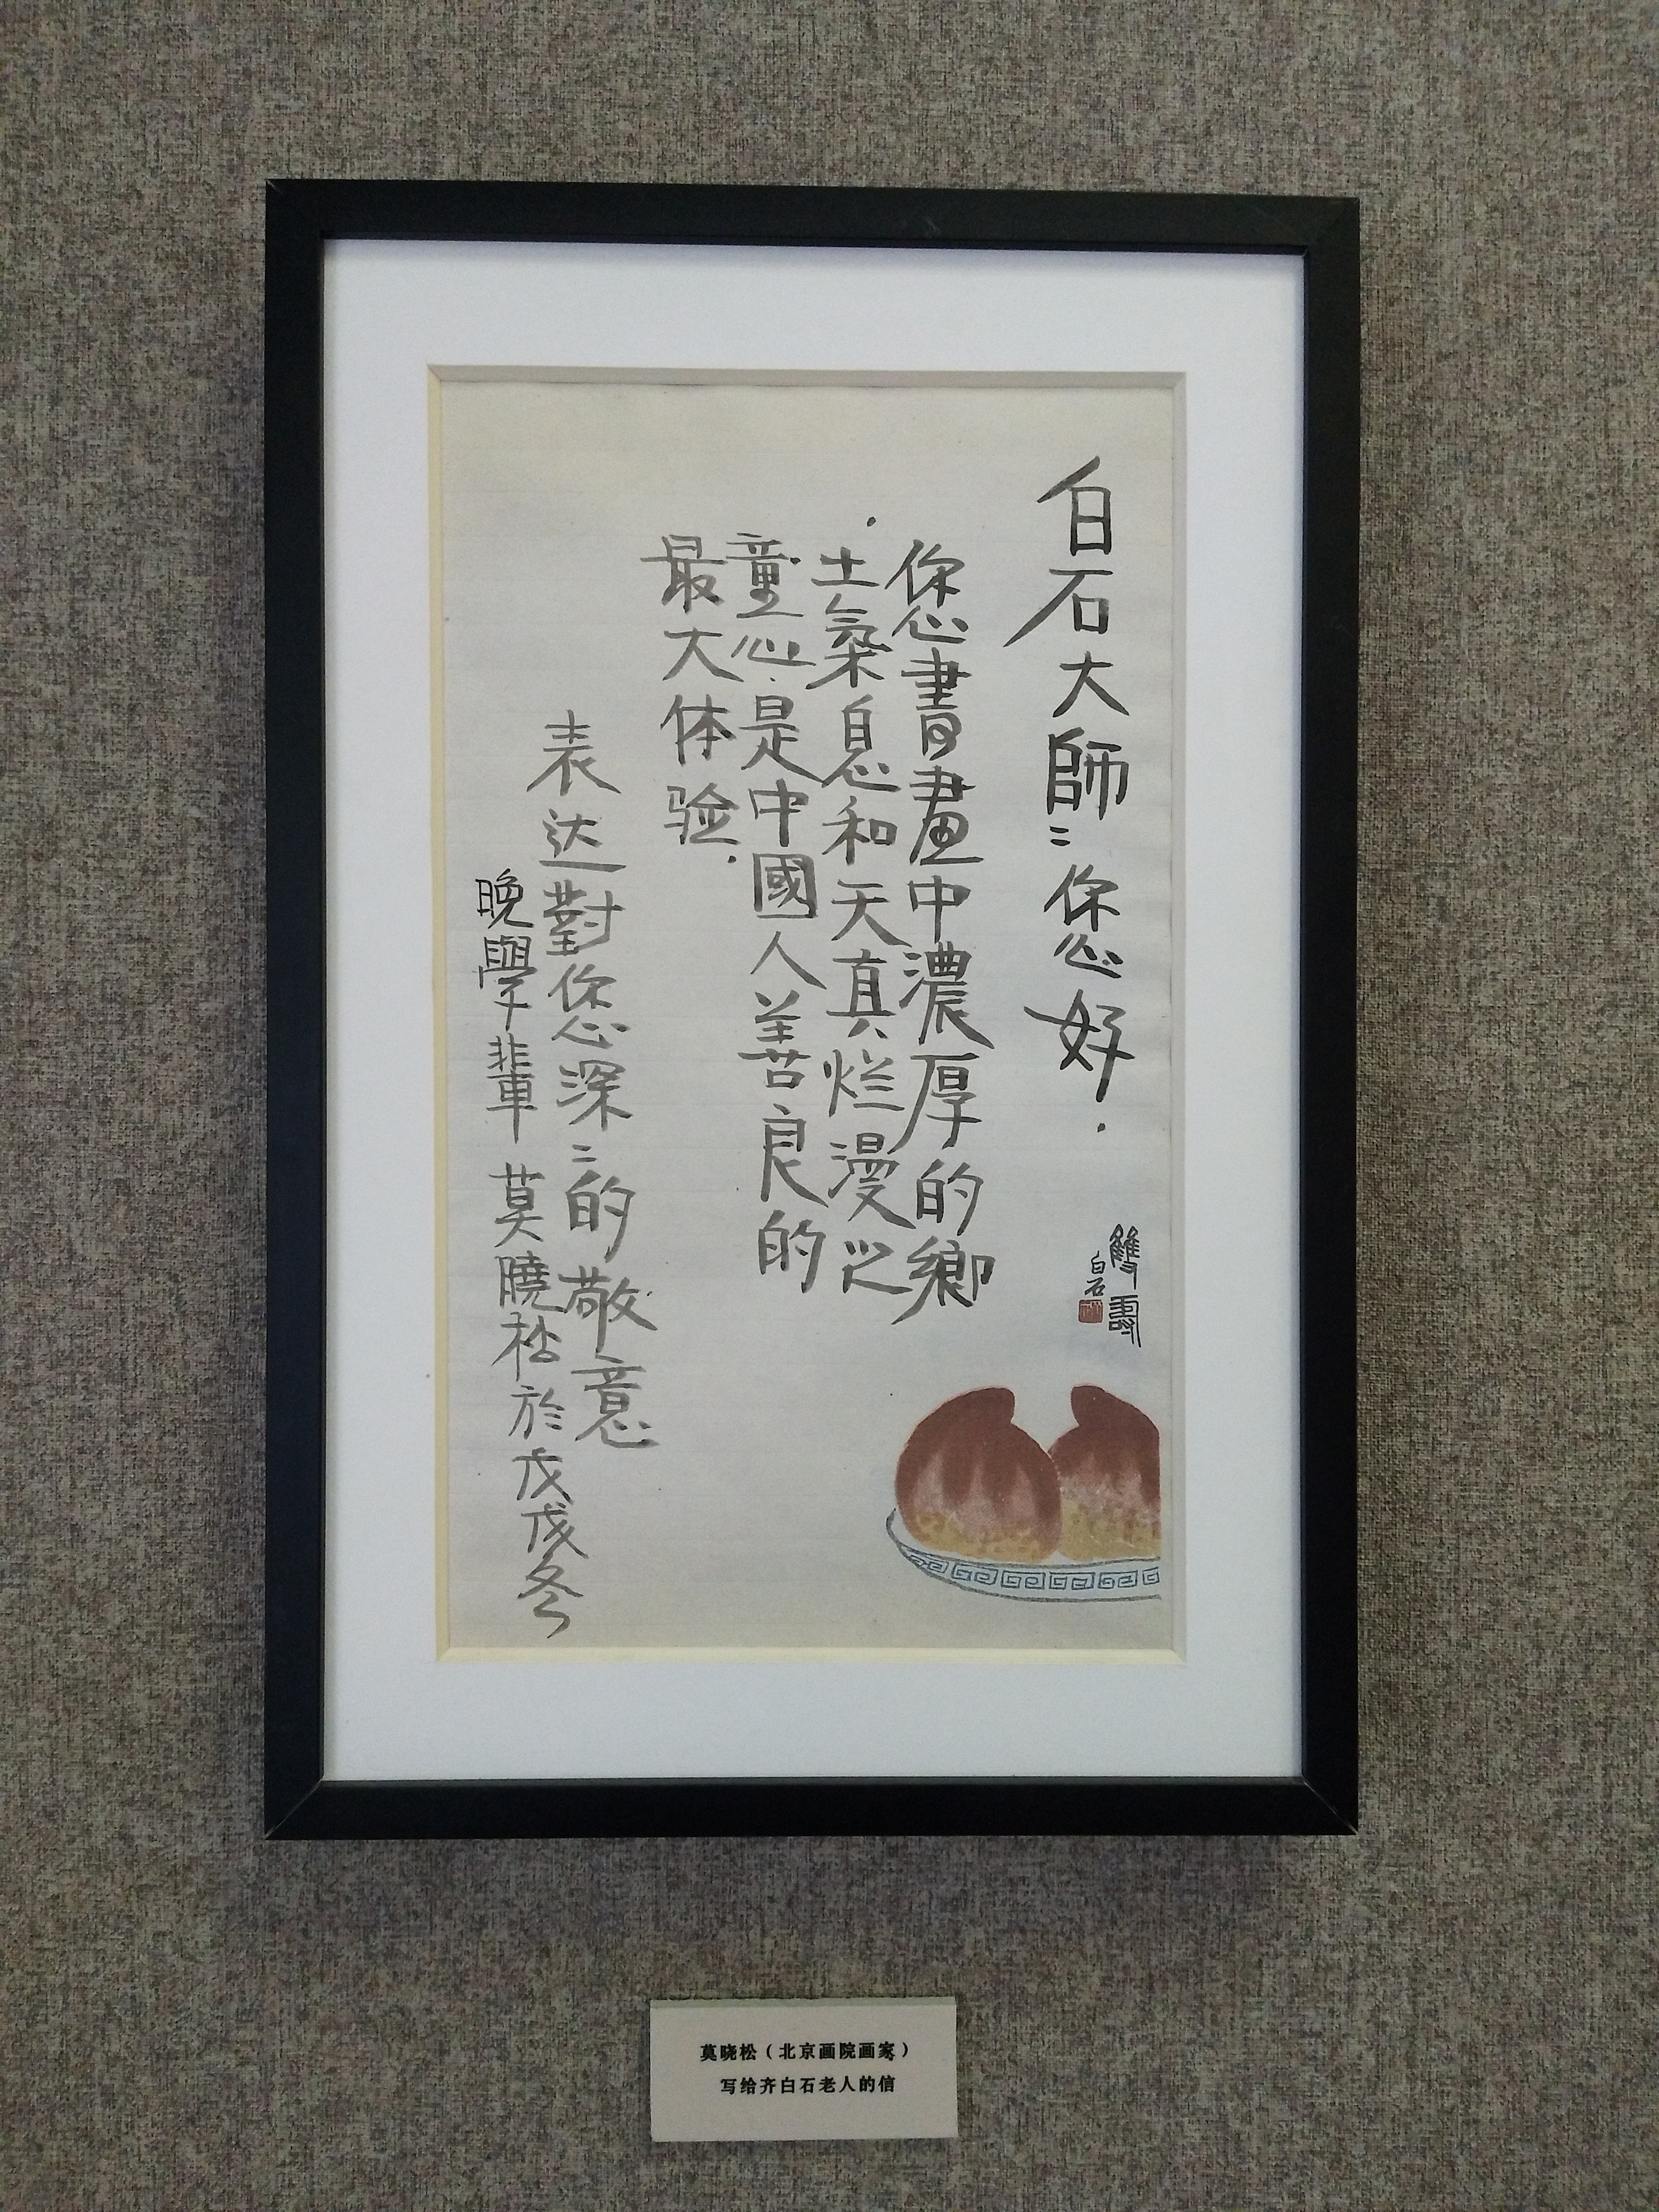 白石大師:您好.
您書畫中濃厚的鄉
土氣息和天真烂漫之
童心.是中國人善良的
最大体验.
表达對您深:的敬意
晚學輩 莫曉松於戊戌冬
雙壽
白石
莫晓松（北京画院画家）
写给齐白石老人的信